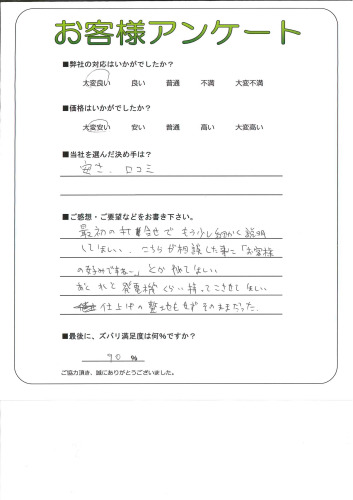 お客様アンケート
■弊社の対応はいかがでしたか？
大変良い 良い 普通 不満 大変不満
■価格はいかがでしたか？
大変安い 安い 普通 高い 大変高い
■当社を選んだ決め手は？
安さ、口コミ
■ご感想・ご要望などをお書き下さい。
最初の打合せでもう少し細かく説明
してほしい、こちらが相談した事に「お客様
の好みですねー」とか やめてほしい
あと 発電機くらい持ってこさせてほしい
仕上げの整地も せず そのままだった.
■最後に、ズバリ満足度は何%ですか？
90 %
ご協力頂き、誠にありがとうございました。